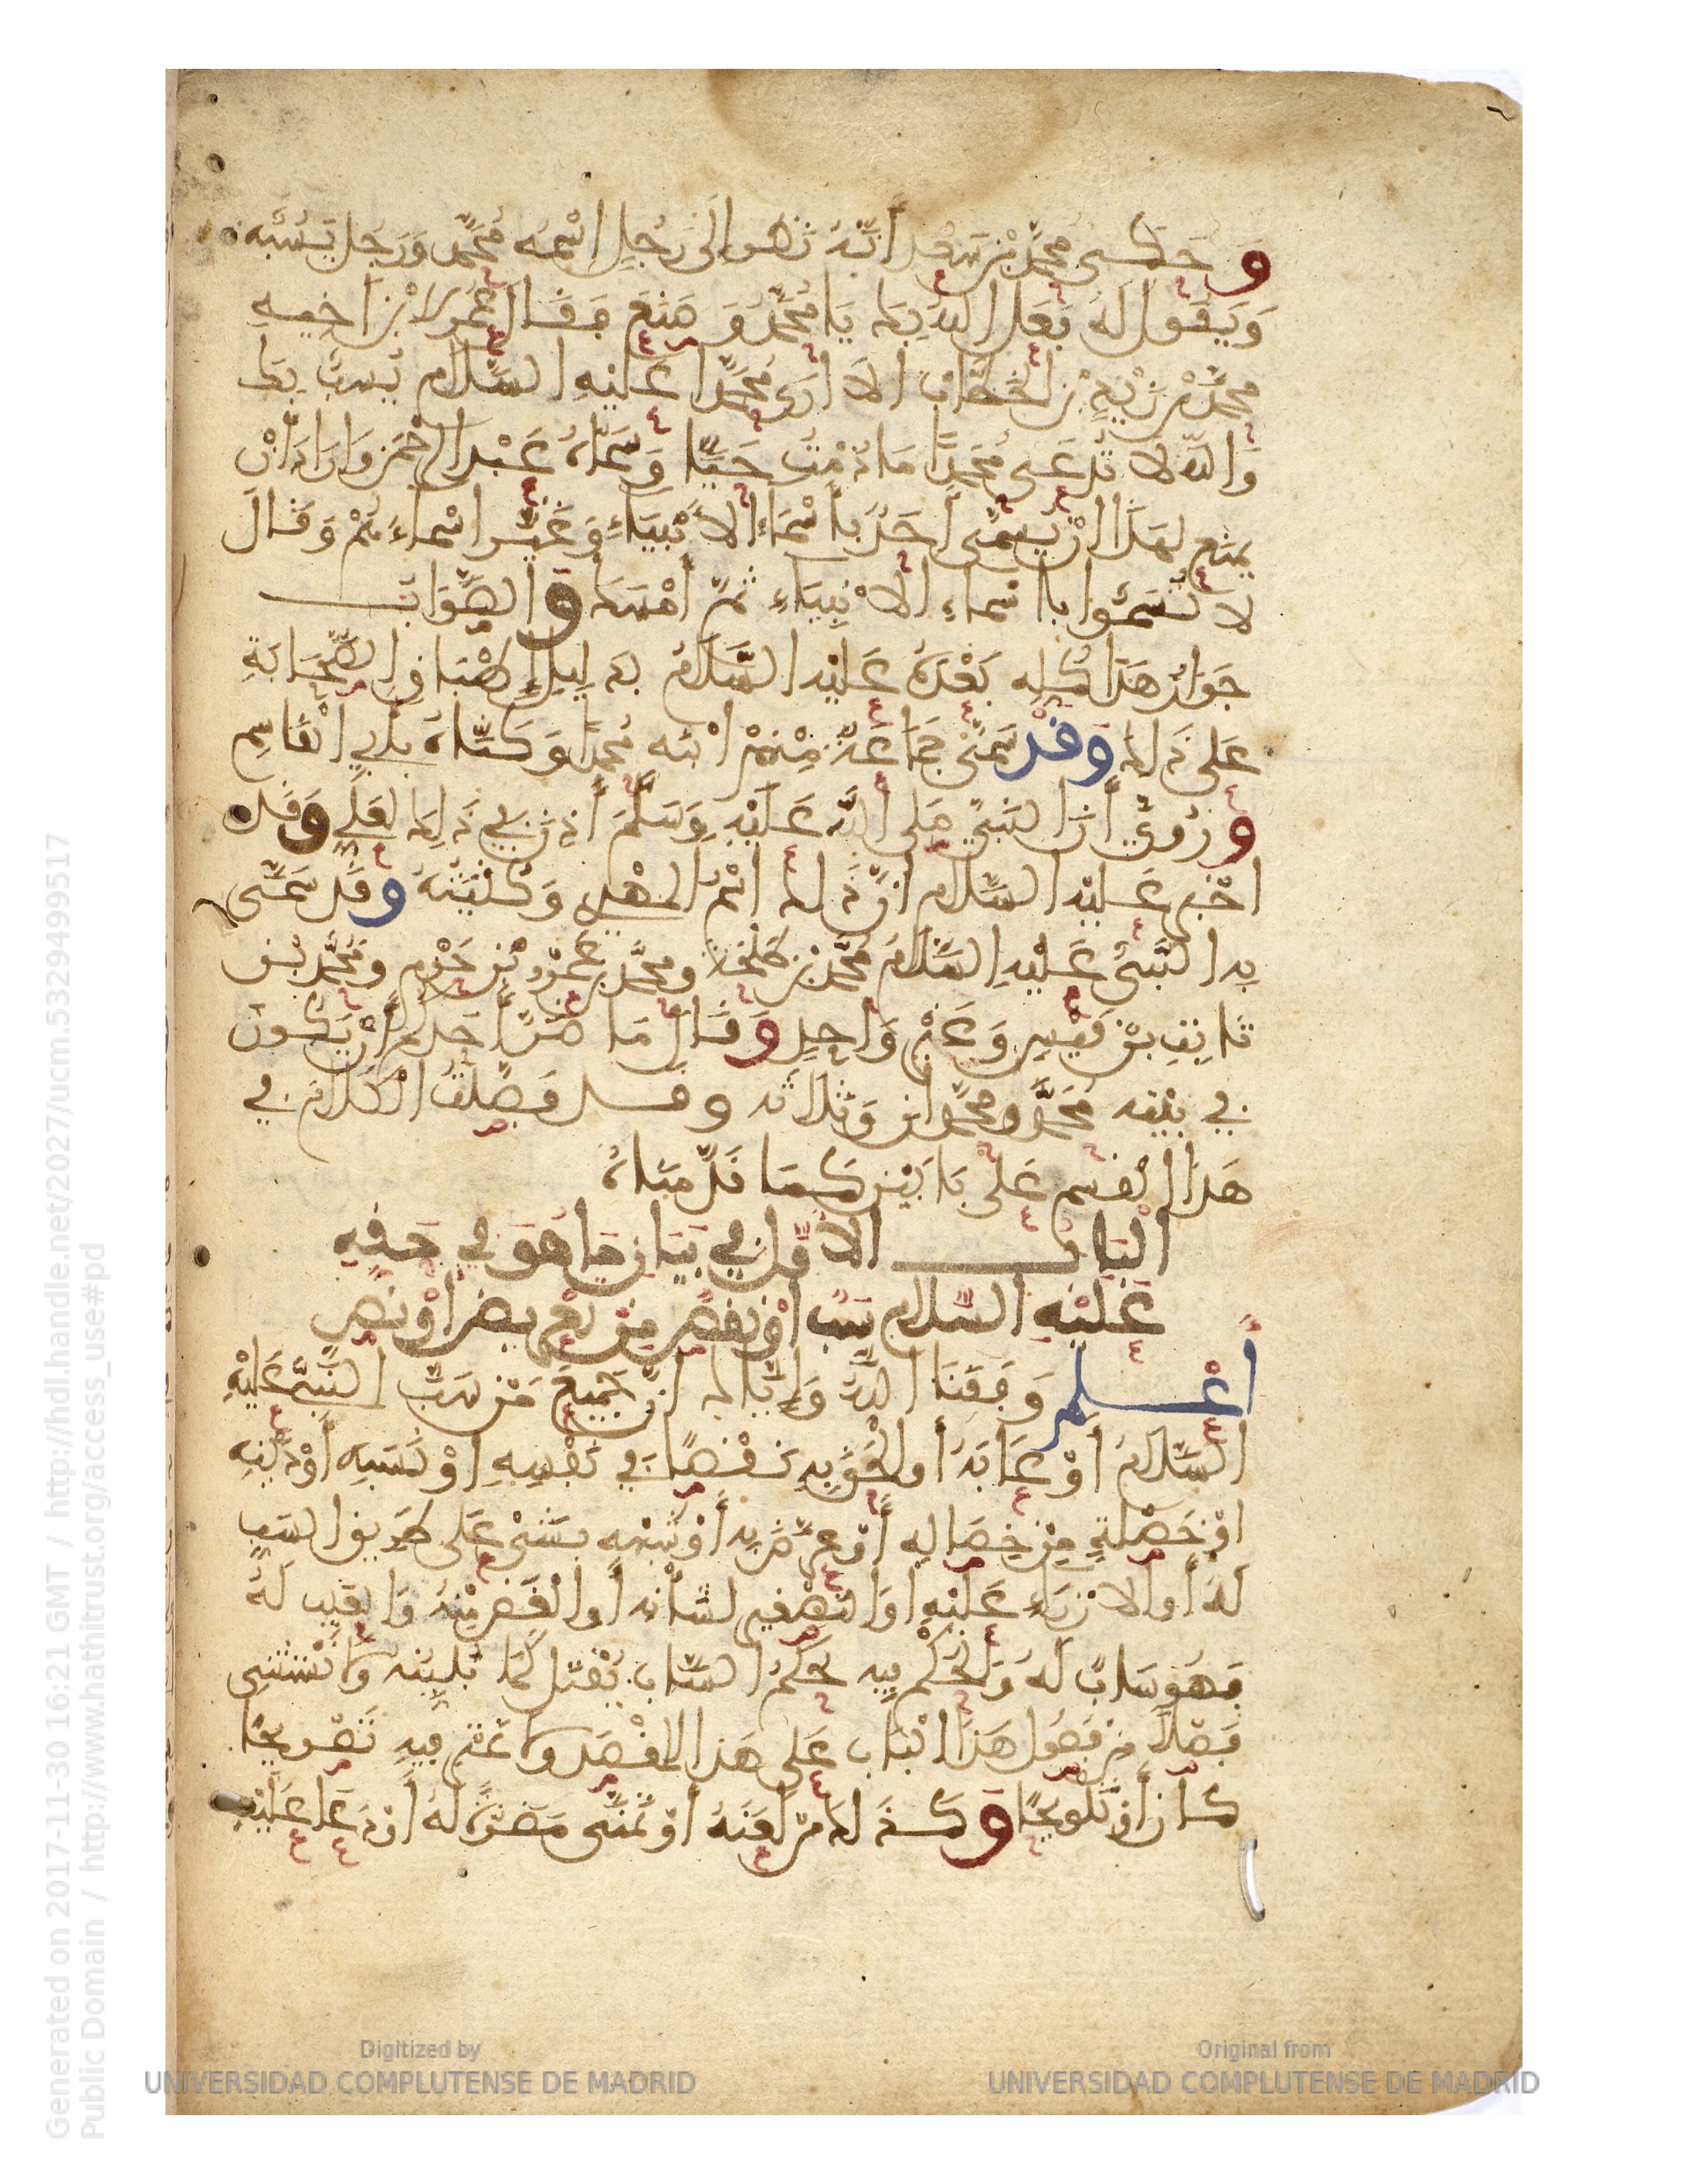 وَحَكَى مُحَمَّدُ بْنُ سَعْدٍ أَنَّهُ نَظَرَ إِلَى رَجُلٍ اسْمُهُ مُحَمَّدٌ وَرَجُلٌ يَسُبُّهُ
وَيَقُولُ لَهُ فَعَلَ اللَّهُ بِكَ يَا مُحَمَّدُ وَصَنَعَ فَقَالَ عُمَرُ لِابْنِ أَخِيهِ
مُحَمَّدِ بْنِ زَيْدِ بْنِ الْخَطَّابِ أَلَا أَرَى مُحَمَّدًا عَلَيْهِ السَّلَامُ يُسَبُّ بِكَ
وَاللَّهِ لَا تُدْعَى مُحَمَّدًا مَا دُمْتُ حَيًّا وَسَمَّاهُ عَبْدَ الرَّحْمَنِ وَأَرَادَ أَنْ
يَمْنَعَ لِهَذَا أَنْ يُسَمَّى أَحَدٌ بِأَسْمَاءِ الْأَنْبِيَاءِ وَغَيَّرَ أَسْمَاءَهُمْ وَقَالَ
لَا تُسَمُّوا بِأَسْمَاءِ الْأَنْبِيَاءِ ثُمَّ أَمْسَكَ وَالصَّوَابُ
جَوَازُ هَذَا كُلِّهِ بَعْدَهُ عَلَيْهِ السَّلَامُ بِدَلِيلِ إِطْبَاقِ الصَّحَابَةِ
عَلَى ذَلِكَ وَقَدْ سَمَّى جَمَاعَةٌ مِنْهُمُ ابْنَهُ مُحَمَّدًا وَكَنَّاهُ بِأَبِي الْقَاسِمِ
وَرُوِيَ أَنَّ النَّبِيَّ صَلَّى اللَّهُ عَلَيْهِ وَسَلَّمَ أَذِنَ فِي ذَلِكَ لِعَلِيٍّ وَقَدْ
أَخْبَرَ عَلَيْهِ السَّلَامُ أَنَّ ذَلِكَ اسْمُ الْمَهْدِيِّ وَكُنْيَتُهُ وَقَدْ سَمَّى
بِهِ النَّبِيُّ عَلَيْهِ السَّلَامُ مُحَمَّدَ بْنَ طَلْحَةَ وَمُحَمَّدَ بْنَ عَمْرِو بْنِ حَزْمٍ وَمُحَمَّدَ بْنَ
ثَابِتِ بْنِ قَيْسٍ وَغَيْرَ وَاحِدٍ وَقَالَ مَا ضَرَّ أَحَدَكُمْ أَنْ يَكُونَ
فِي بَيْتِهِ مُحَمَّدٌ وَمُحَمَّدَانِ وَثَلَاثَةٌ وَقَدْ فَصَّلْتُ الْكَلَامَ فِي
هَذَا الْقِسْمِ عَلَى بَابَيْنِ كَمَا قَدَّمْنَاهُ
الْبَابُ الْأَوَّلُ فِي بَيَانِ مَا هُوَ فِي حَقِّهِ
عَلَيْهِ السَّلَامُ سَبٌّ أَوْ نَقْصٌ مِنْ تَعْرِيضٍ أَوْ نَصٍّ
اعْلَمْ وَفَّقَنَا اللَّهُ وَإِيَّاكَ أَنَّ جَمِيعَ مَنْ سَبَّ النَّبِيَّ عَلَيْهِ
السَّلَامُ أَوْ عَابَهُ أَوْ أَلْحَقَ بِهِ نَقْصًا فِي نَفْسِهِ أَوْ نَسَبِهِ أَوْ دِينِهِ
أَوْ خَصْلَةٍ مِنْ خِصَالِهِ أَوْ عَرَّضَ بِهِ أَوْ شَبَّهَهُ بِشَيْءٍ عَلَى طَرِيقِ السَّبِّ
لَهُ أَوِ الْإِزْرَاءِ عَلَيْهِ أَوِ التَّصْغِيرِ لِشَأْنِهِ أَوِ الْغَضِّ مِنْهُ وَالْعَيْبِ لَهُ
فَهُوَ سَابٌّ لَهُ وَالْحُكْمُ فِيهِ حُكْمُ السَّابِّ يُقْتَلُ كَمَا نُبَيِّنُهُ وَلَا نَسْتَثْنِي
فَصْلًا مِنْ فُصُولِ هَذَا الْبَابِ عَلَى هَذَا الْمَقْصَدِ وَلَا نَمْتَرِي فِيهِ تَصْرِيحًا
كَانَ أَوْ تَلْوِيحًا وَكَذَلِكَ مَنْ لَعَنَهُ أَوْ تَمَنَّى مَضَرَّةً لَهُ أَوْ دَعَا عَلَيْهِ
Generated on 2017-11-30 16:21 GMT / http://hdl.handle.net/2027/ucm.5329499517
Public Domain / http://www.hathitrust.org/access_use#pd
Digitized by
UNIVERSIDAD COMPLUTENSE DE MADRID
Original from
UNIVERSIDAD COMPLUTENSE DE MADRID